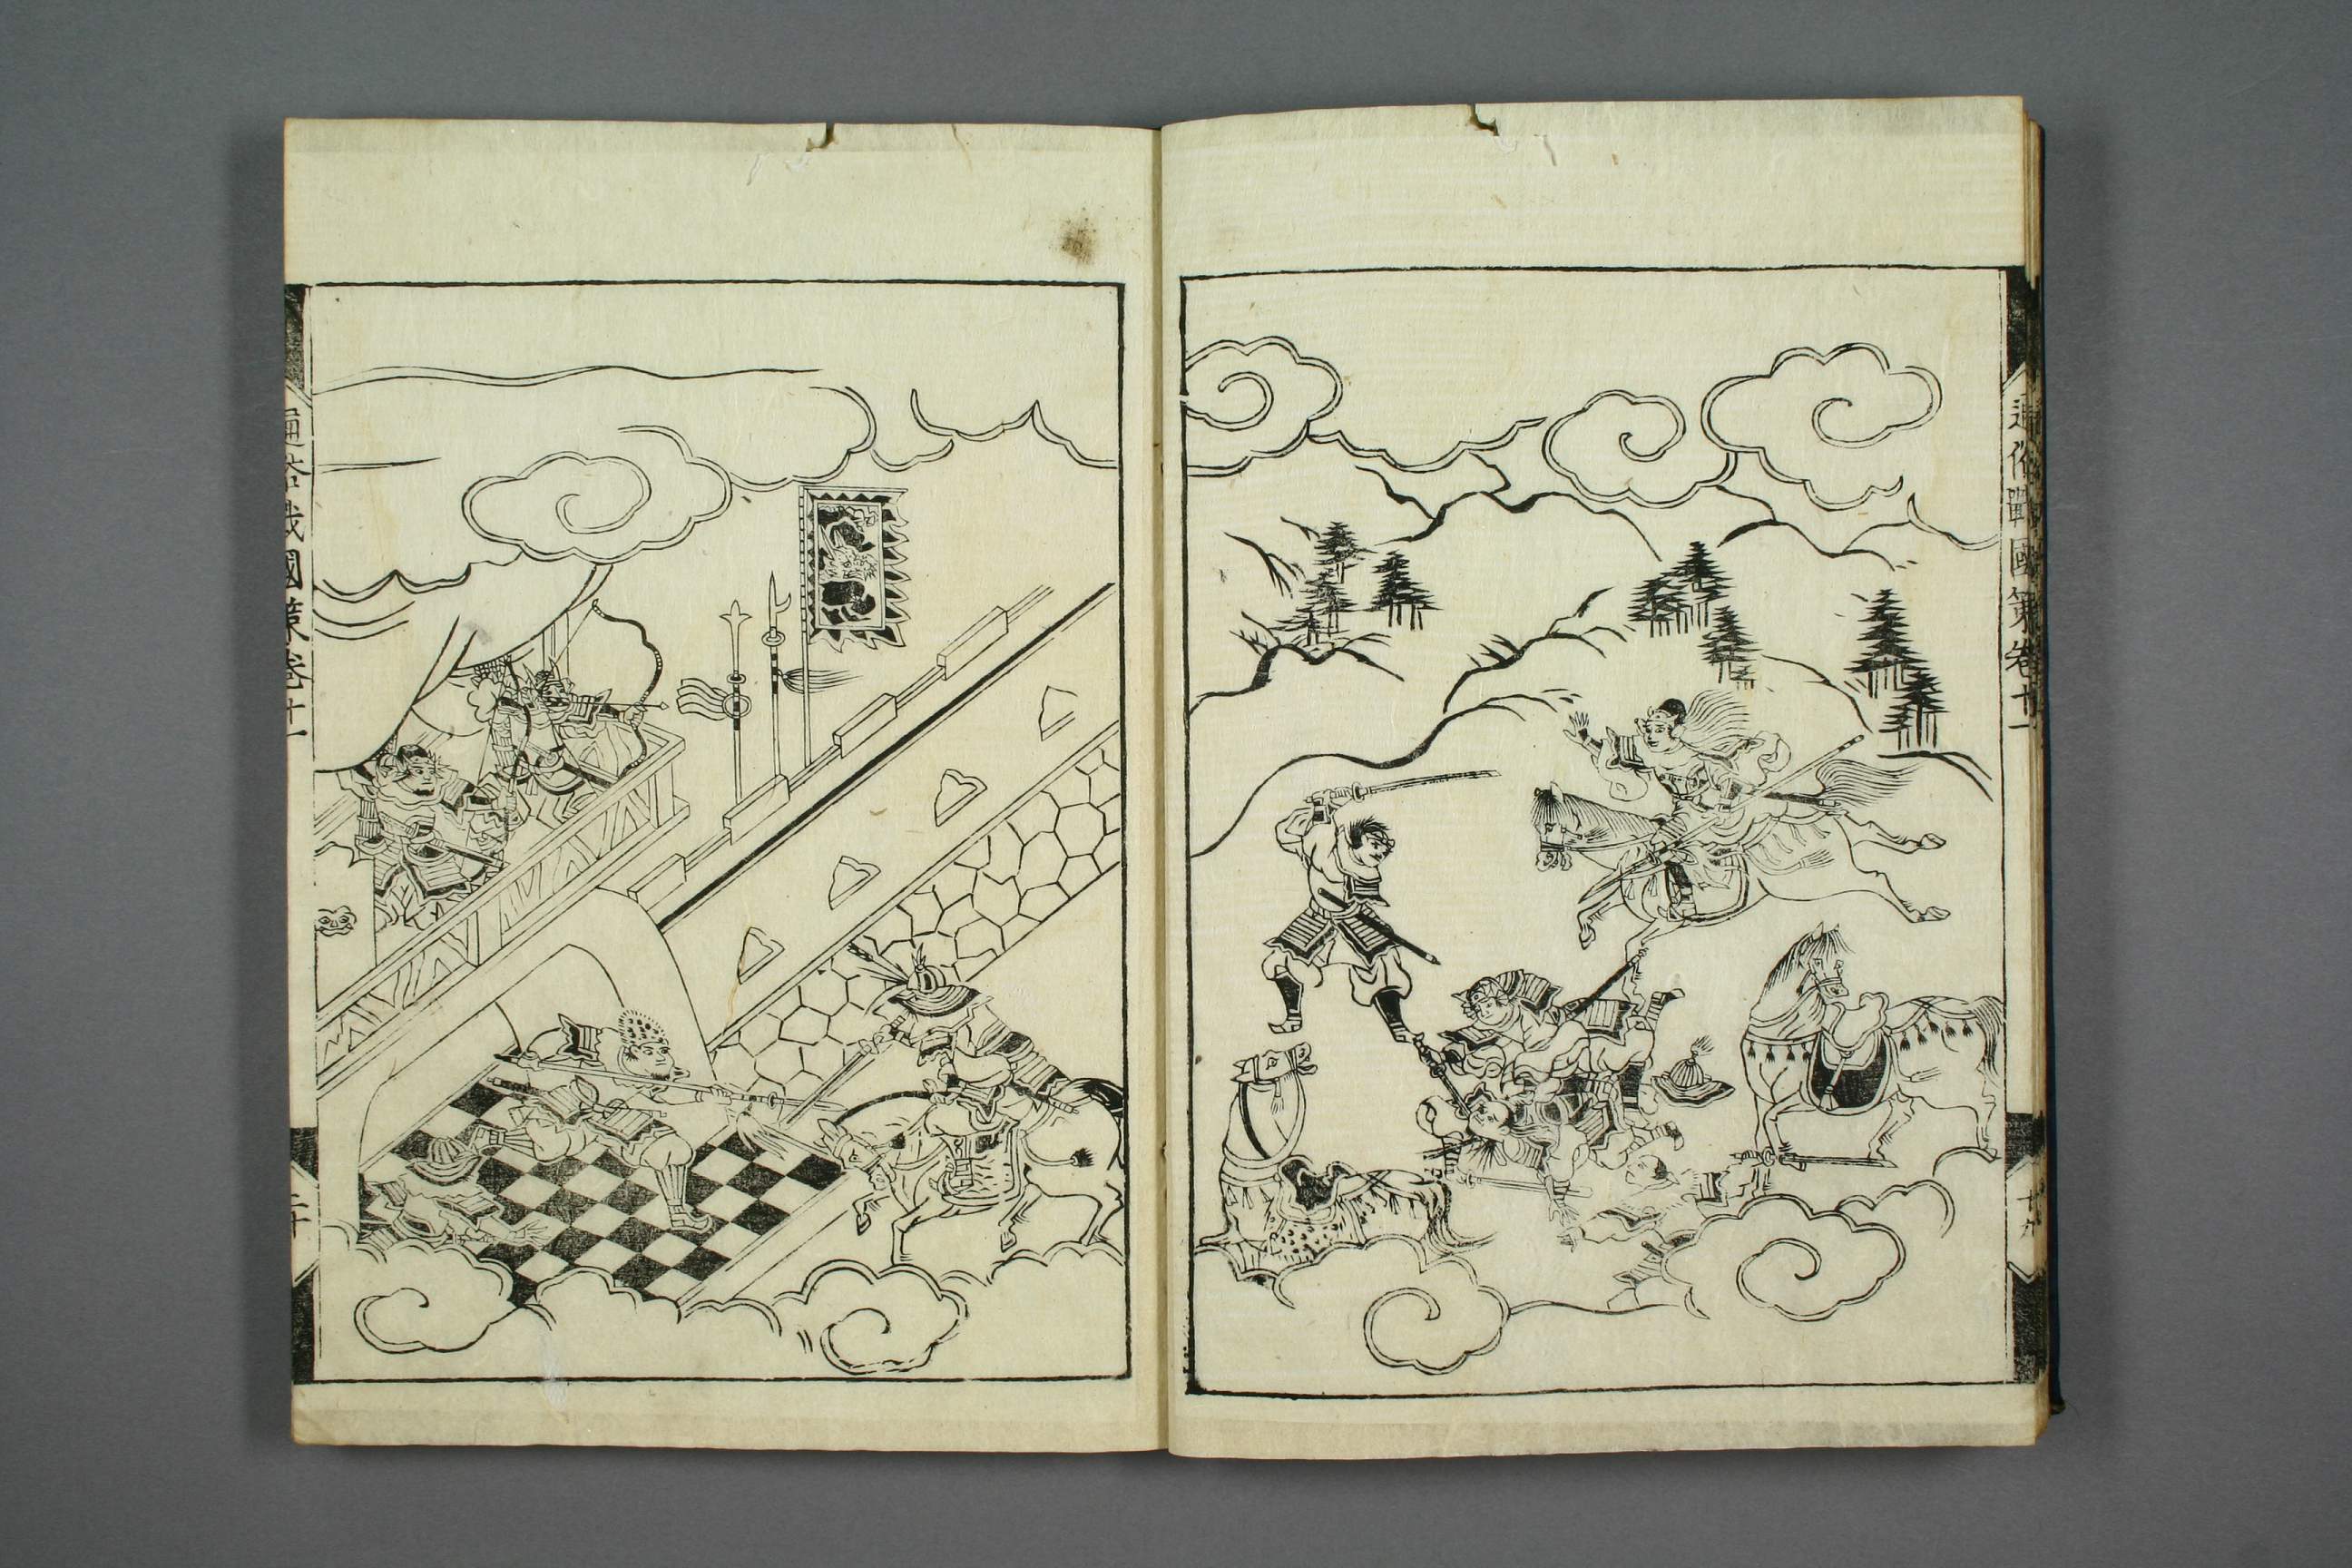 通俗戰國策卷十一
十九
通俗戰國策卷十一
二十